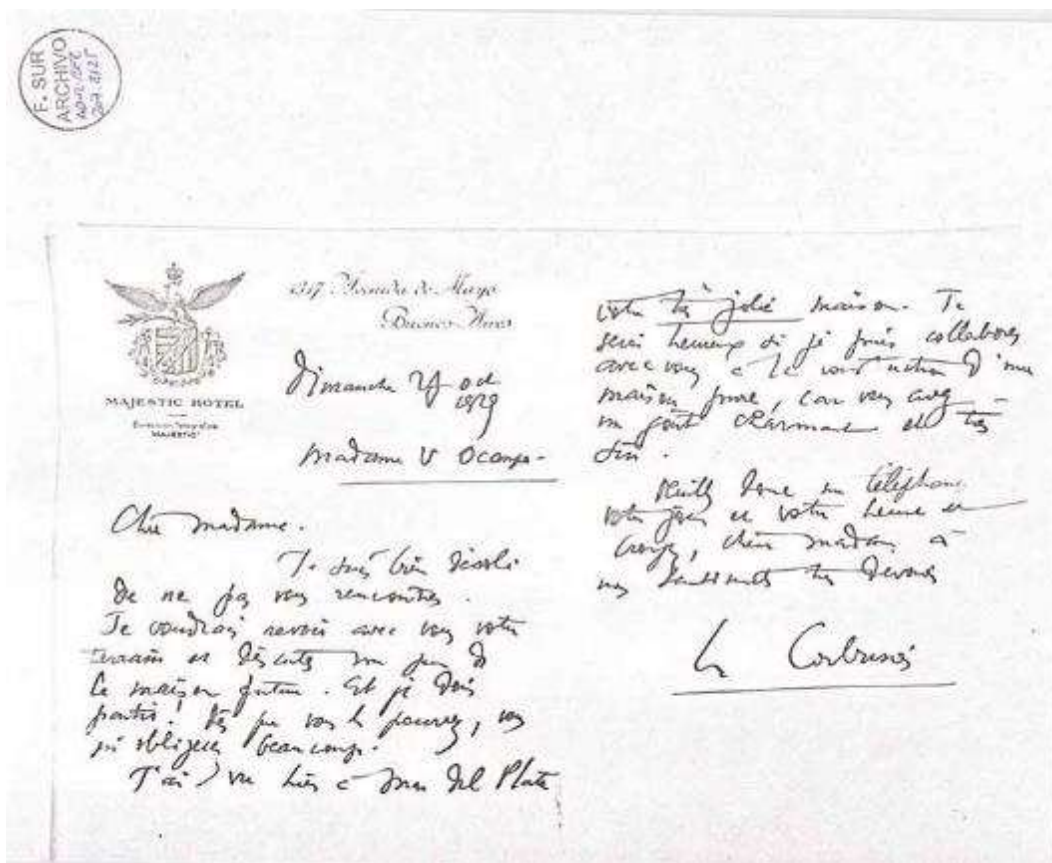 F. SUR
ARCHIVO
MAJESTIC HOTEL
"MAJESTIC"
1317 Avenida de Mayo
Buenos Aires
Dimanche oct
1929
Madame V Ocampo -
Chère Madame.
Je suis bien désolé
de ne pas vous rencontrer.
Je voudrais revoir avec vous votre
terrain et discuter un peu de
la maison future. Et je dois
partir! Dès que vous le pourrez, vous
m'obligerez beaucoup.
J'ai vu hier à Mar del Plata
votre très jolie maison. Je
serai heureux si je puis collaborer
avec vous à la construction d'une
maison pure, car vous avez
un goût charmant et très
sûr.
Veuillez donc me téléphoner
votre jour et votre heure et
croyez, chère madame à
mes sentiments très dévoués
Le Corbusier